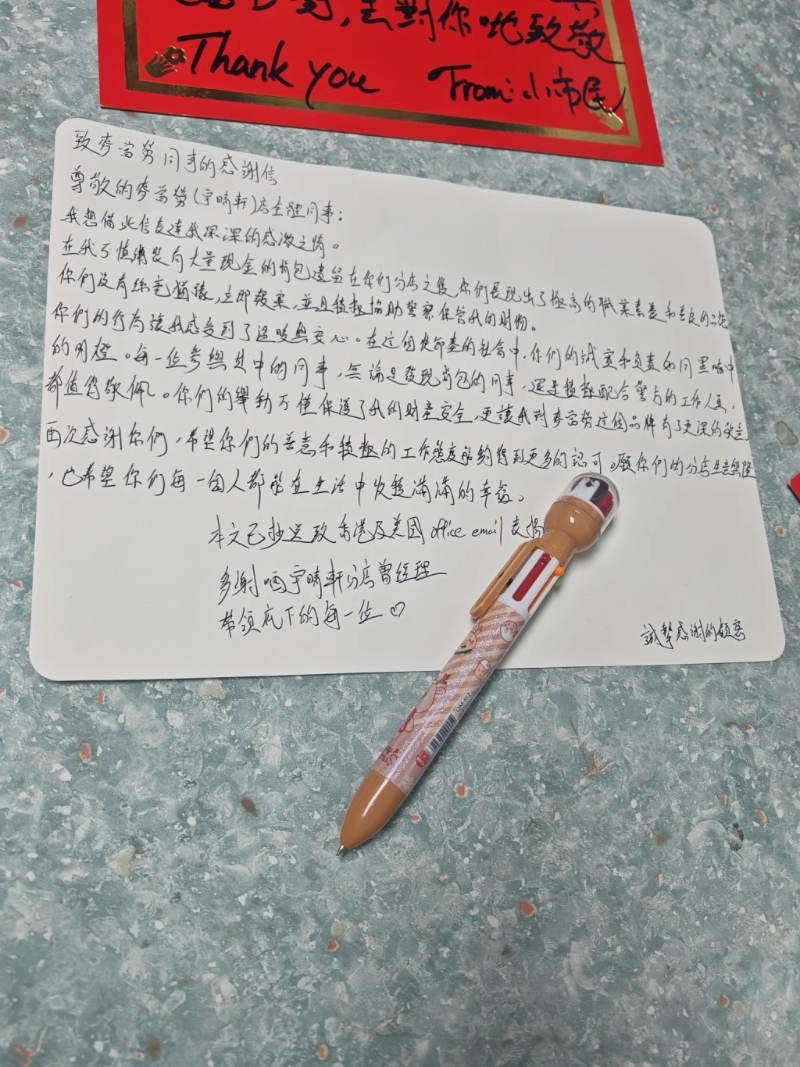 去對你哋致敬
Thank you From:小市民
致麥當勞同事的感謝信
尊敬的麥當勞(宇晴軒)店全體同事:
我想借此信表達我深深的感激之情。
在我不慎將裝有大量現金的背包遺留在你們分店之後,你們展現出了極高的職業素養和善良的品德
你們沒有絲毫猶豫,立即報案,並且積極協助警察保管我的財物。
你們的行為讓我感受到了溫暖與安心。在這個快節奏的社會中,你們的誠實和負責如同黑暗中
的明燈。每一位參與其中的同事,無論是發現背包的同事,還是積極配合警方的工作人員,
都值得敬佩。你們的舉動不僅保護了我的財產安全,更讓我對麥當勞這個品牌有了更深的
再次感謝你們,希望你們的善意和積極的工作態度能夠得到更多的認可。願你們的分店
,也希望你們每一個人都能在生活中收獲滿滿的幸福。
本文已抄送致香港及美國office email表揚
多謝晒宇晴軒分店曾經理
帶領底下的每一位♡
誠摯感謝的顧客